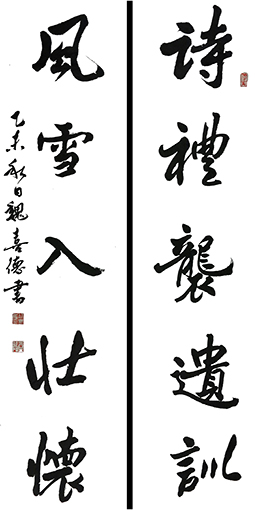 詩禮襲遺訓
風雪入壯懷
乙未秋日魏喜德書